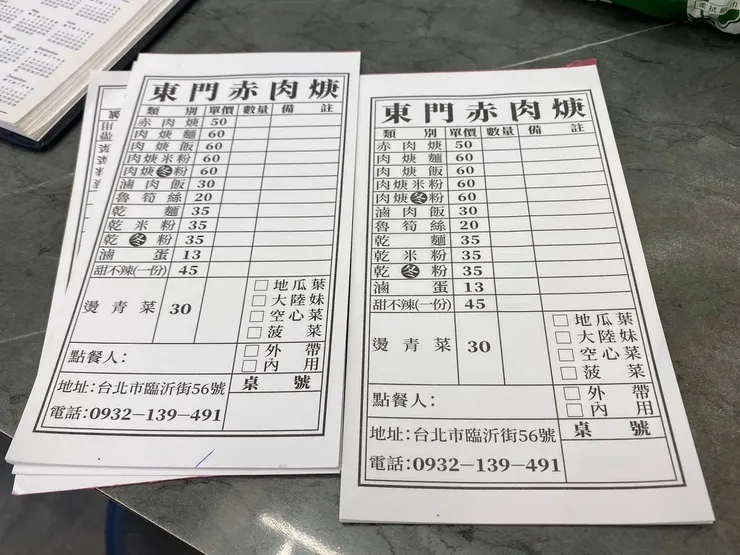 東門赤肉焿
類別 單價 數量 備註
赤肉焿 50
肉焿麵 60
肉焿飯 60
肉焿米粉 60
肉焿冬粉 60
滷肉飯 30
魯筍絲 20
乾麵 35
乾米粉 35
乾冬粉 35
滷蛋 13
甜不辣(一份) 45
燙青菜 30
□地瓜葉
□大陸妹
□空心菜
□菠菜
點餐人：
□外帶
□內用
地址:台北市臨沂街56號
桌號
電話:0932－139－491
東門赤肉焿
類別 單價 數量 備註
赤肉焿 50
肉焿麵 60
肉焿飯 60
肉焿米粉 60
肉焿冬粉 60
滷肉飯 30
魯筍絲 20
乾麵 35
乾米粉 35
乾冬粉 35
滷蛋 13
甜不辣(一份) 45
燙青菜 30
□地瓜葉
□大陸妹
□空心菜
□菠菜
點餐人：
□外帶
□內用
地址:台北市臨沂街56號
桌號
電話:0932－139－491